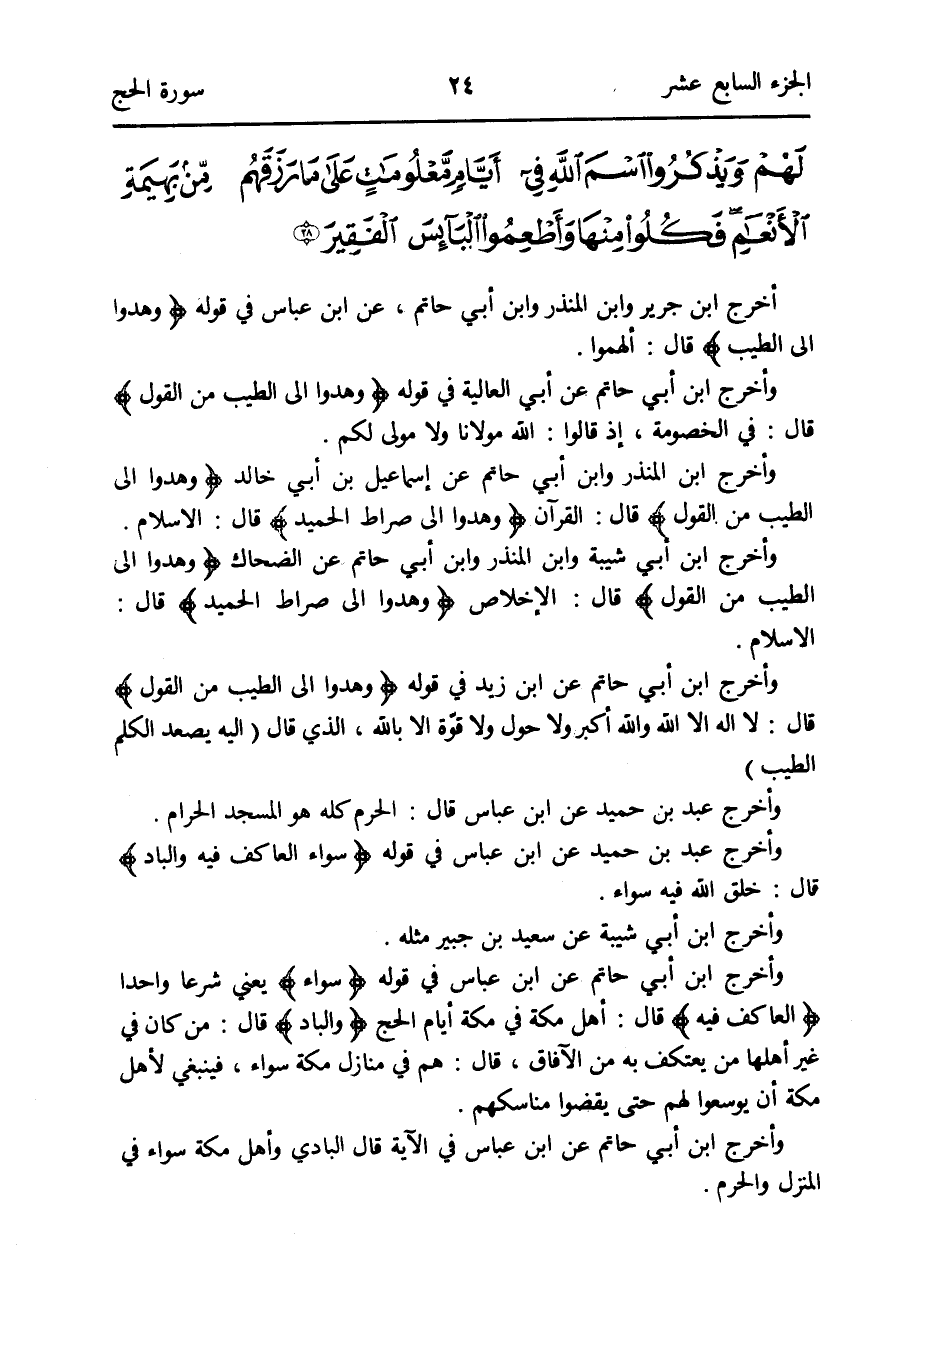 الجزء السابع عشر ٢٤ سورة الحج
لَهُمْ وَيَذْكُرُوا۟ ٱسْمَ ٱللَّهِ فِىٓ أَيَّامٍ مَّعْلُومَٰتٍ عَلَىٰ مَا رَزَقَهُم مِّنۢ بَهِيمَةِ
ٱلْأَنْعَٰمِ ۖ فَكُلُوا۟ مِنْهَا وَأَطْعِمُوا۟ ٱلْبَآئِسَ ٱلْفَقِيرَ ﴿٢٨﴾
أخرج ابن جرير وابن المنذر وابن أبي حاتم ، عن ابن عباس في قوله ﴿ وهدوا
الى الطيب ﴾ قال : ألهموا .
وأخرج ابن أبي حاتم عن أبي العالية في قوله ﴿ وهدوا الى الطيب من القول ﴾
قال : في الخصومة ، إذ قالوا : الله مولانا ولا مولى لكم .
وأخرج ابن المنذر وابن أبي حاتم عن إسماعيل بن أبي خالد ﴿ وهدوا الى
الطيب من القول ﴾ قال : القرآن ﴿ وهدوا الى صراط الحميد ﴾ قال : الاسلام .
وأخرج ابن أبي شيبة وابن المنذر وابن أبي حاتم عن الضحاك ﴿ وهدوا الى
الطيب من القول ﴾ قال : الإخلاص ﴿ وهدوا الى صراط الحميد ﴾ قال :
الاسلام .
وأخرج ابن أبي حاتم عن ابن زيد في قوله ﴿ وهدوا الى الطيب من القول ﴾
قال : لا اله الا الله والله أكبر ولا حول ولا قوّة الا بالله ، الذي قال ( اليه يصعد الكلم
الطيب )
وأخرج عبد بن حميد عن ابن عباس قال : الحرم كله هو المسجد الحرام .
وأخرج عبد بن حميد عن ابن عباس في قوله ﴿ سواء العاكف فيه والباد ﴾
قال : خلق الله فيه سواء .
وأخرج ابن أبي شيبة عن سعيد بن جبير مثله .
وأخرج ابن أبي حاتم عن ابن عباس في قوله ﴿ سواء ﴾ يعني شرعا واحدا
﴿ العاكف فيه ﴾ قال : أهل مكة في مكة أيام الحج ﴿ والباد ﴾ قال : من كان في
غير أهلها من يعتكف به من الآفاق ، قال : هم في منازل مكة سواء ، فينبغي لأهل
مكة أن يوسعوا لهم حتى يقضوا مناسكهم .
وأخرج ابن أبي حاتم عن ابن عباس في الآية قال البادي وأهل مكة سواء في
المنزل والحرم .